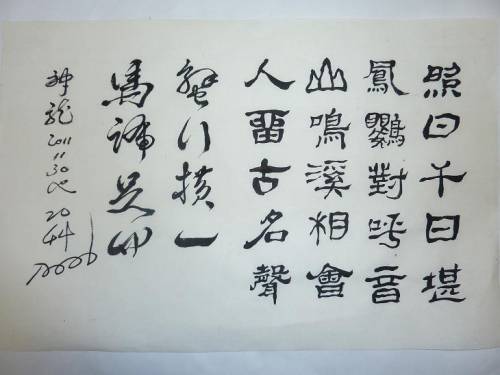 照日千日堪
鳳鸚對呼音
山鳴溪相會
人留古名聲
蟹行横一
馬蹄足印
神龍2011 11 30
20